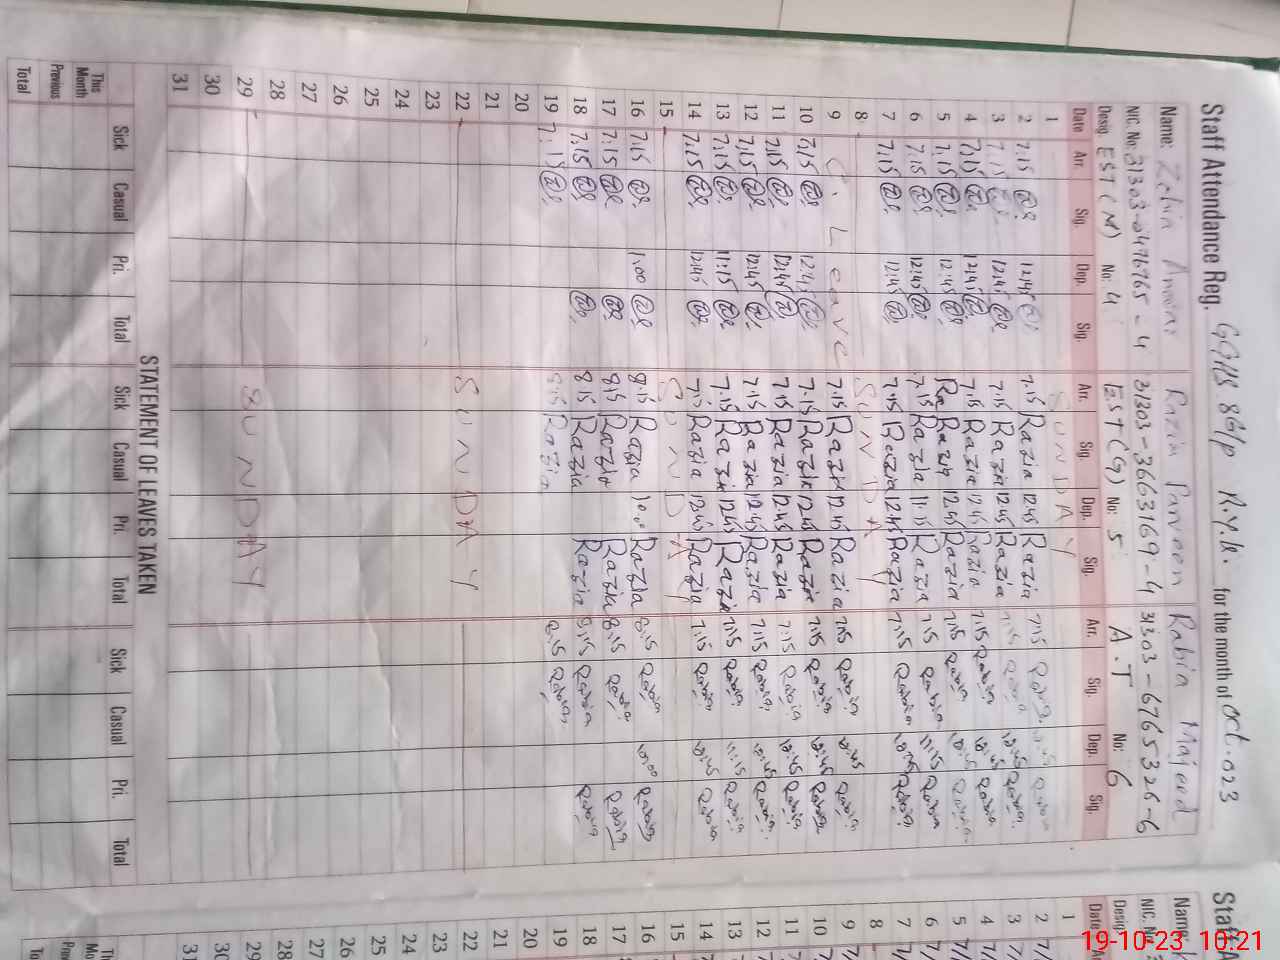 Staff Attendance Reg. GGHS 86/p R.Y.K. for the month of Oct. 023
Name: Zebia Razia Parveen Rabia Majeed
NIC. No: 31303-0476765-4 31303-3663169-4 31303-6765326-6
Desig. EST (M) No: 4 EST (G) No: 5 A.T No: 6
Date Arr. Sig. Dep. Sig. Arr. Sig. Dep. Sig. Arr. Sig. Dep. Sig.
1 SUNDAY
2 7:15 12:45 7:15 Razia 12:45 Razia 7:15 Rabia 12:45 Rabia
3 7:15 12:45 7:15 Razia 12:45 Razia 7:15 Rabia 12:45 Rabia
4 7:15 12:45 7:15 Razia 12:45 Razia 7:15 Rabia 12:45 Rabia
5 7:15 12:45 Razia 12:45 Razia 7:15 Rabia 12:45 Rabia
6 7:15 12:45 7:15 Razia 11:15 Razia 7:15 Rabia 11:15 Rabia
7 7:15 12:45 7:15 Razia 12:45 Razia 7:15 Rabia 12:45 Rabia
8 SUNDAY
9 C. Leave 7:15 Razia 12:45 Razia 7:15 Rabia 12:45 Rabia
10 7:15 12:45 7:15 Razia 12:45 Razia 7:15 Rabia 12:45 Rabia
11 7:15 12:45 7:15 Razia 12:45 Razia 7:15 Rabia 12:45 Rabia
12 7:15 12:45 7:15 Razia 12:45 Razia 7:15 Rabia 12:45 Rabia
13 7:15 11:15 7:15 Razia 12:45 Razia 7:15 Rabia 11:15 Rabia
14 7:15 12:45 7:15 Razia 12:45 Razia 7:15 Rabia 12:45 Rabia
15 SUNDAY
16 7:15 1:00 8:15 Razia 1:00 Razia 8:15 Rabia Rabia
17 7:15 8:15 Razia Razia 8:15 Rabia Rabia
18 7:15 8:15 Razia Razia 8:15 Rabia Rabia
19 7:15 8:15 Razia 8:15 Rabia
20
21
22 SUNDAY
23
24
25
26
27
28
29 SUNDAY
30
31
STATEMENT OF LEAVES TAKEN
Sick Casual Pri. Total Sick Casual Pri. Total Sick Casual Pri. Total
This Month
Previous
Total
Staff A
Name:
NIC. No
Desig.
Date
1
2
3
4
5
6
7
8
9
10
11
12
13
14
15
16
17
18
19
20
21
22
23
24
25
26
27
28
29
30
31
19-10-23 10:21